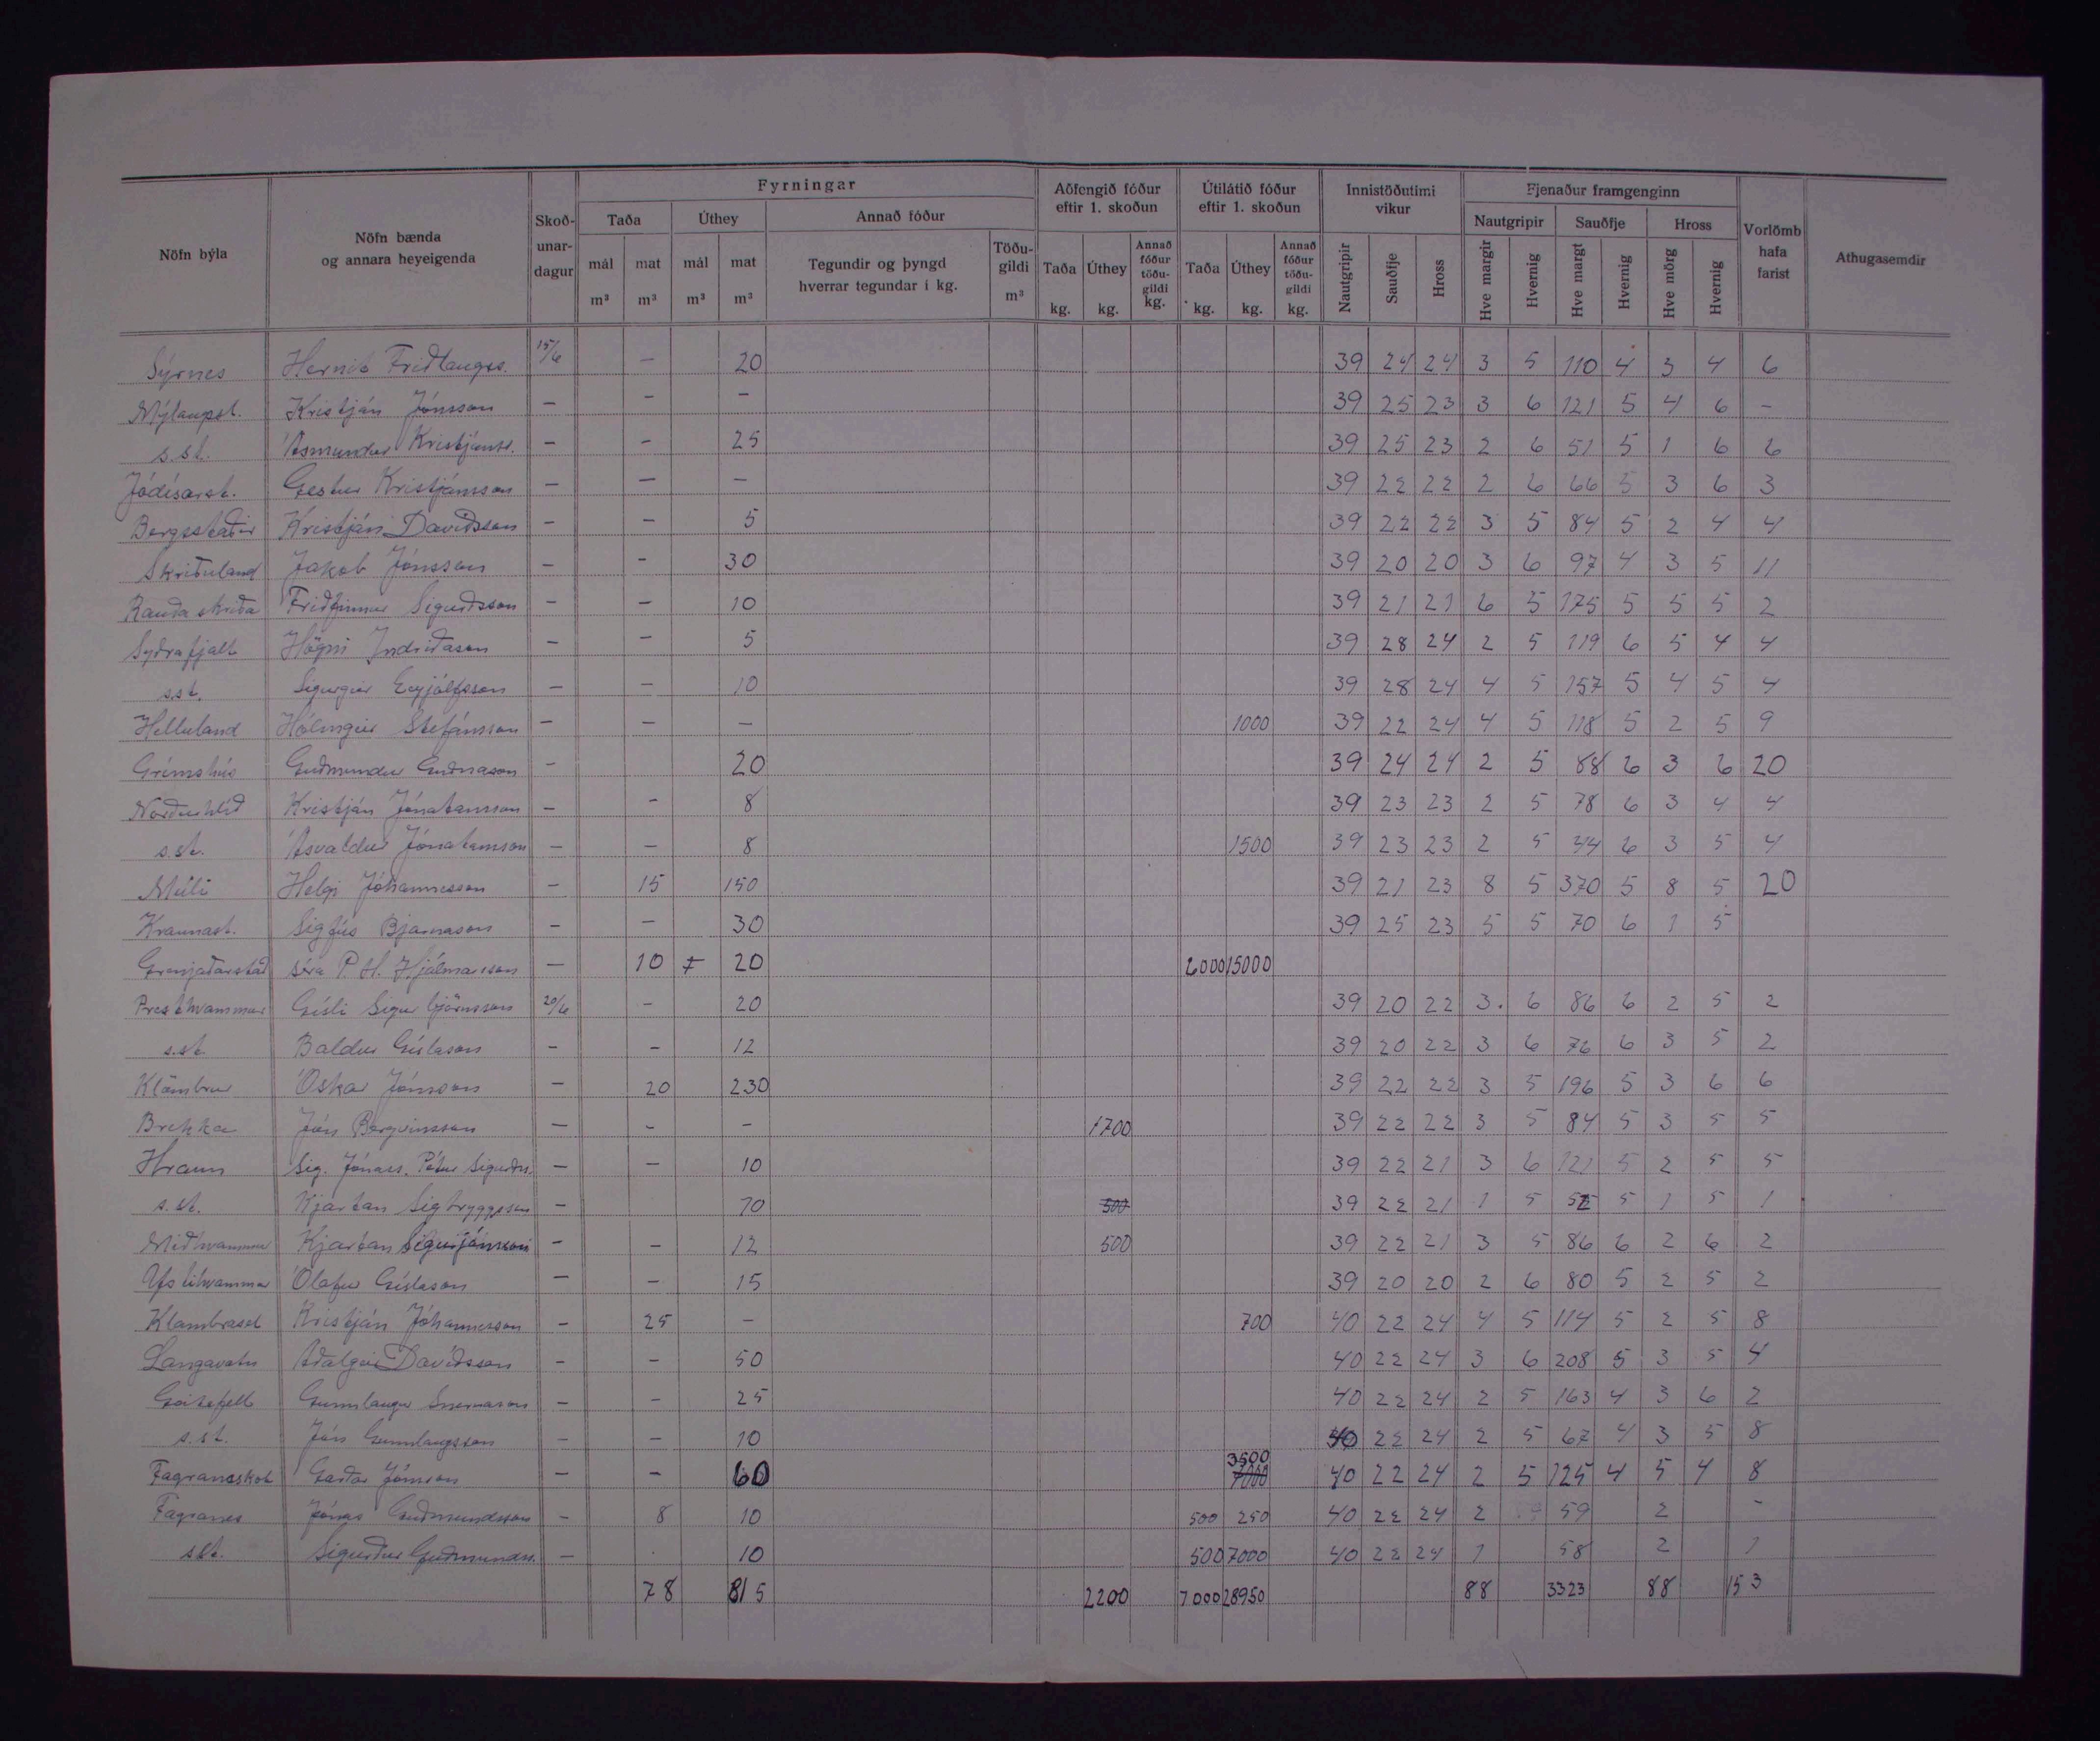 Fyrningar
Aðfengið fóður eftir 1. skoðun
Útilátið fóður eftir 1. skoðun
Innistöðutimi vikur
Fjenaður framgenginn
Nöfn býla
Nöfn bænda og annara heyeigenda
Skoð-unar-dagur
Taða
Úthey
Annað fóður
Nautgripir
Sauðfje
Hross
Vorlömb hafa farist
Athugasemdir
mál m³
mat m³
mál m³
mat m³
Tegundir og þyngd hverrar tegundar í kg.
Töðu-gildi m³
Taða kg.
Úthey kg.
Annað fóður töðu-gildi kg.
Taða kg.
Úthey kg.
Annað fóður töðu-gildi kg.
Nautgripir
Sauðfje
Hross
Hve margir
Hvernig
Hve margt
Hvernig
Hve mörg
Hvernig
Sýrnes Hernit Friðlaugss. 15/6 – 20 39 24 24 3 5 110 4 3 4 6
Mýlaugst. Kristján Jónsson – – – 39 25 23 3 6 121 5 4 6 –
s.st. Ásmundur Kristjánss. – – 25 39 25 23 2 6 51 5 1 6 6
Jódísarst. Gestur Kristjánsson – – – 39 22 22 2 6 66 5 3 6 3
Bergsstaðir Kristján Davíðsson – – 5 39 22 22 3 5 84 5 2 4 4
Skriðuland Jakob Jónsson – – 30 39 20 20 3 6 97 4 3 5 11
Rauðaskriða Friðfinnur Sigurðsson – – 10 39 21 21 6 5 175 5 5 5 2
Syðrafjall Högni Indriðason – – 5 39 28 24 2 5 119 6 5 4 4
s.st. Sigurgeir Eyjólfsson – – 10 39 28 24 4 5 157 5 4 5 4
Helluland Hólmgeir Stefánsson – – – 1000 39 22 24 4 5 118 5 2 5 9
Grímshús Guðmundur Guðnason – 20 39 24 24 2 5 88 6 3 6 20
Norðurhlíð Kristján Jónatansson – – 8 39 23 23 2 5 78 6 3 4 4
s.st. Ásvaldur Jónatansson – – 8 1500 39 23 23 2 5 44 6 3 5 4
Múli Helgi Jóhannesson – 15 150 39 21 23 8 5 370 5 8 5 20
Kraunast. Sigfús Bjarnason – – 30 39 25 23 5 5 70 6 1 5
Grenjaðarstað séra Þ. H. Hjálmarsson – 10 7 20 6000 15000
Presthvammur Gísli Sigurbjörnsson 20/6 – 20 39 20 22 3. 6 86 6 2 5 2
s.st. Baldur Gíslason – – 12 39 20 22 3 6 76 6 3 5 2
Klömbrur Óskar Jónsson – 20 230 39 22 22 3 5 196 5 3 6 6
Brekka Jón Bergvinsson – – – 1700 39 22 22 3 5 84 5 3 5 5
Hraun Sig. Jónass. Pétur Sigurðss. – – 10 39 22 21 3 6 121 5 2 5 5
s.st. Kjartan Sigtryggsson – 70 500 39 22 21 1 5 52 5 1 5 1
Miðhvammur Kjartan Sigurjónsson – – 12 500 39 22 21 3 5 86 6 2 6 2
Ystihvammur Ólafur Gíslason – – 15 39 20 20 2 6 80 5 2 5 2
Klambrasel Kristján Jóhannesson – 25 – 700 40 22 24 4 5 114 5 2 5 8
Langavatn Aðalgeir Davíðsson – – 50 40 22 24 3 6 208 5 3 5 4
Geitafell Gunnlaugur Snorrason – – 25 40 22 24 2 5 163 4 3 6 2
s.st. Jón Gunnlaugsson – – 10 40 22 24 2 5 67 4 3 5 8
Fagraneskot Garðar Jónsson – – 60 3500 7000 40 22 24 2 5 125 4 5 4 8
Fagranes Jónas Guðmundsson – 8 10 500 250 40 22 24 2 59 2 –
s.st. Sigurður Guðmundss. – 10 500 7000 40 22 24 1 58 2 1
78 815 2200 7000 28950 88 3323 88 153